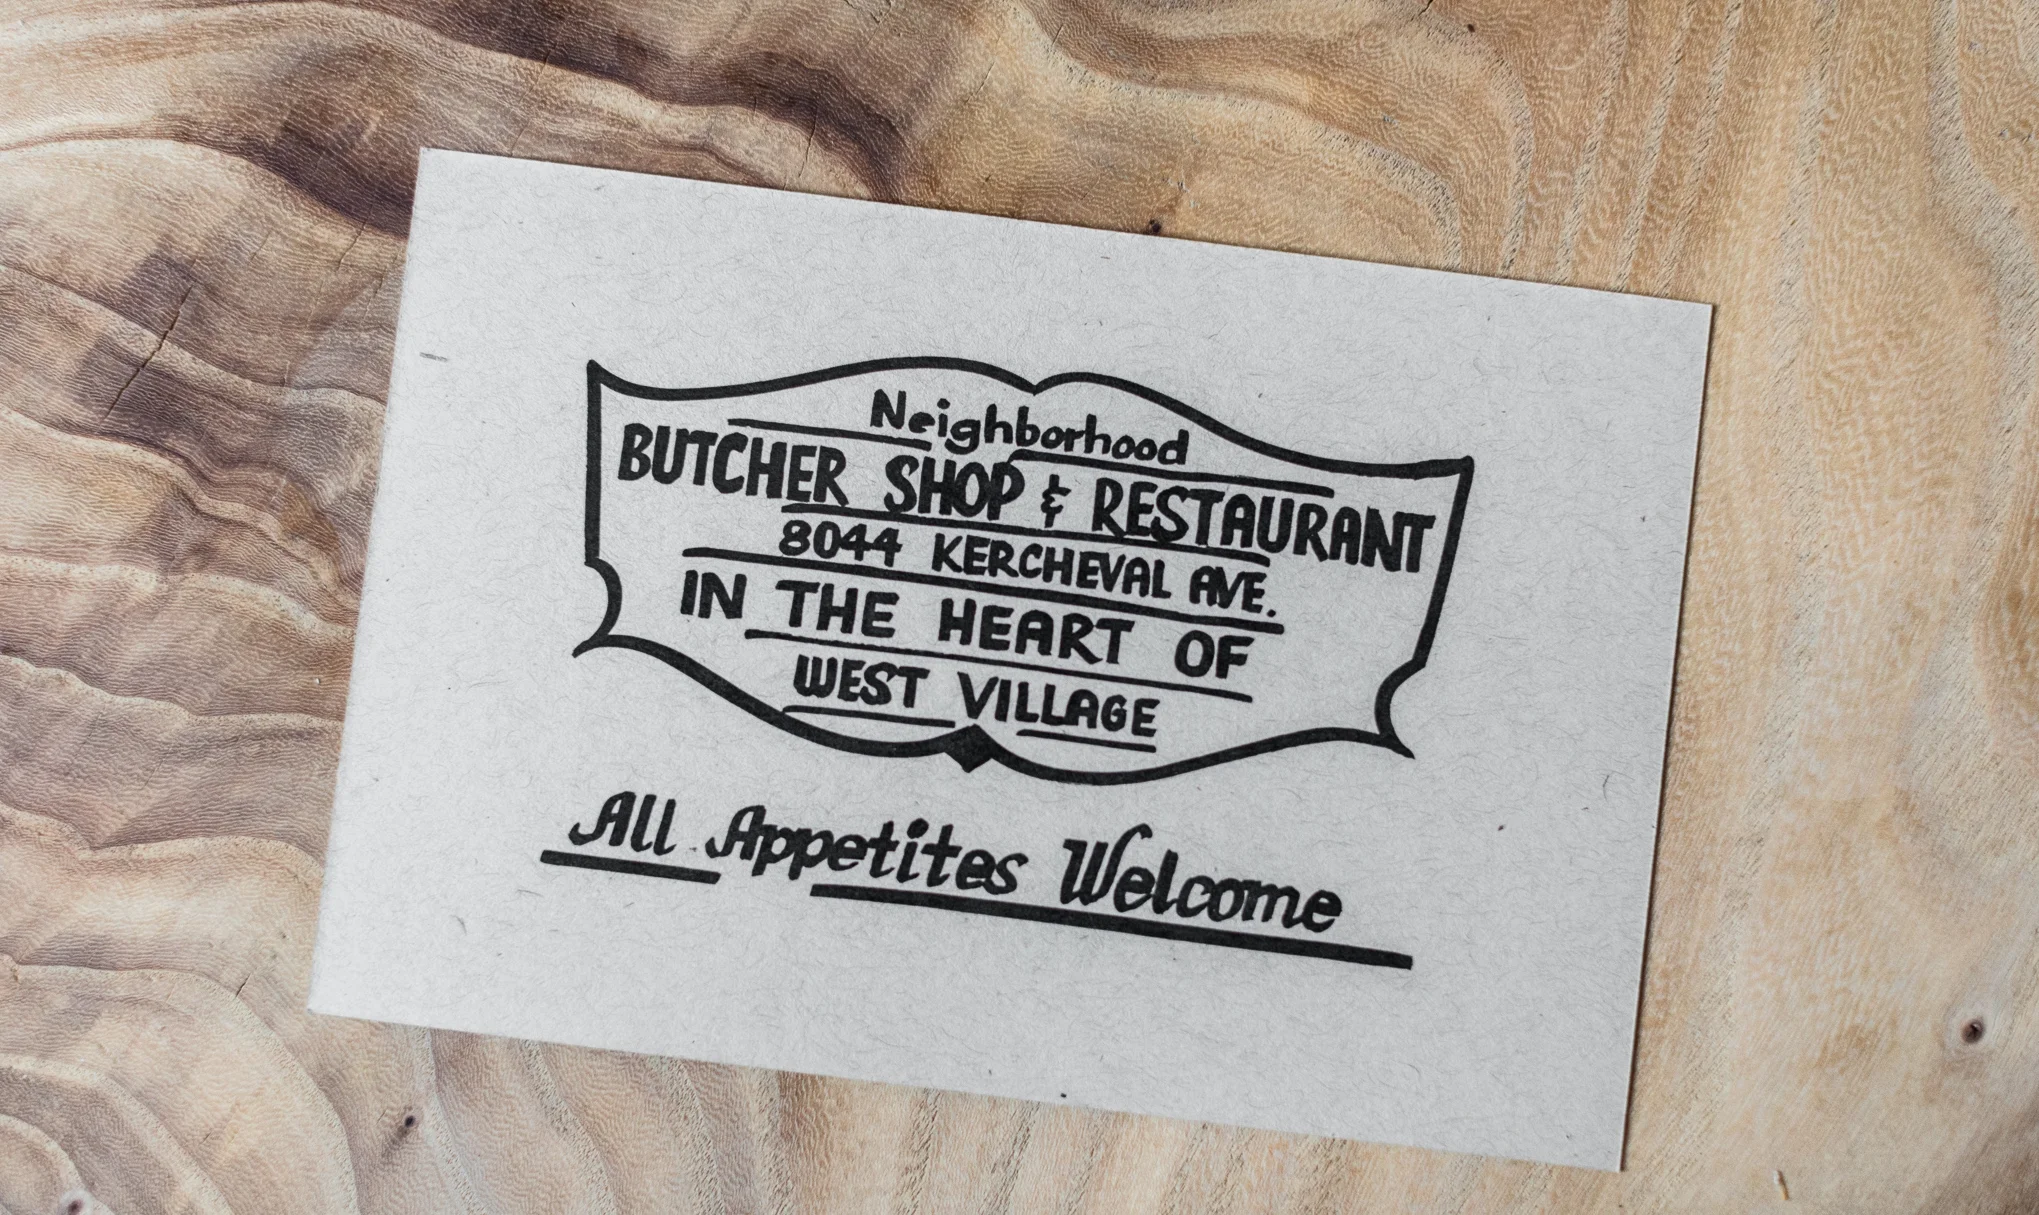 Neighborhood
BUTCHER SHOP & RESTAURANT
8044 KERCHEVAL AVE.
IN THE HEART OF
WEST VILLAGE
All Appetites Welcome